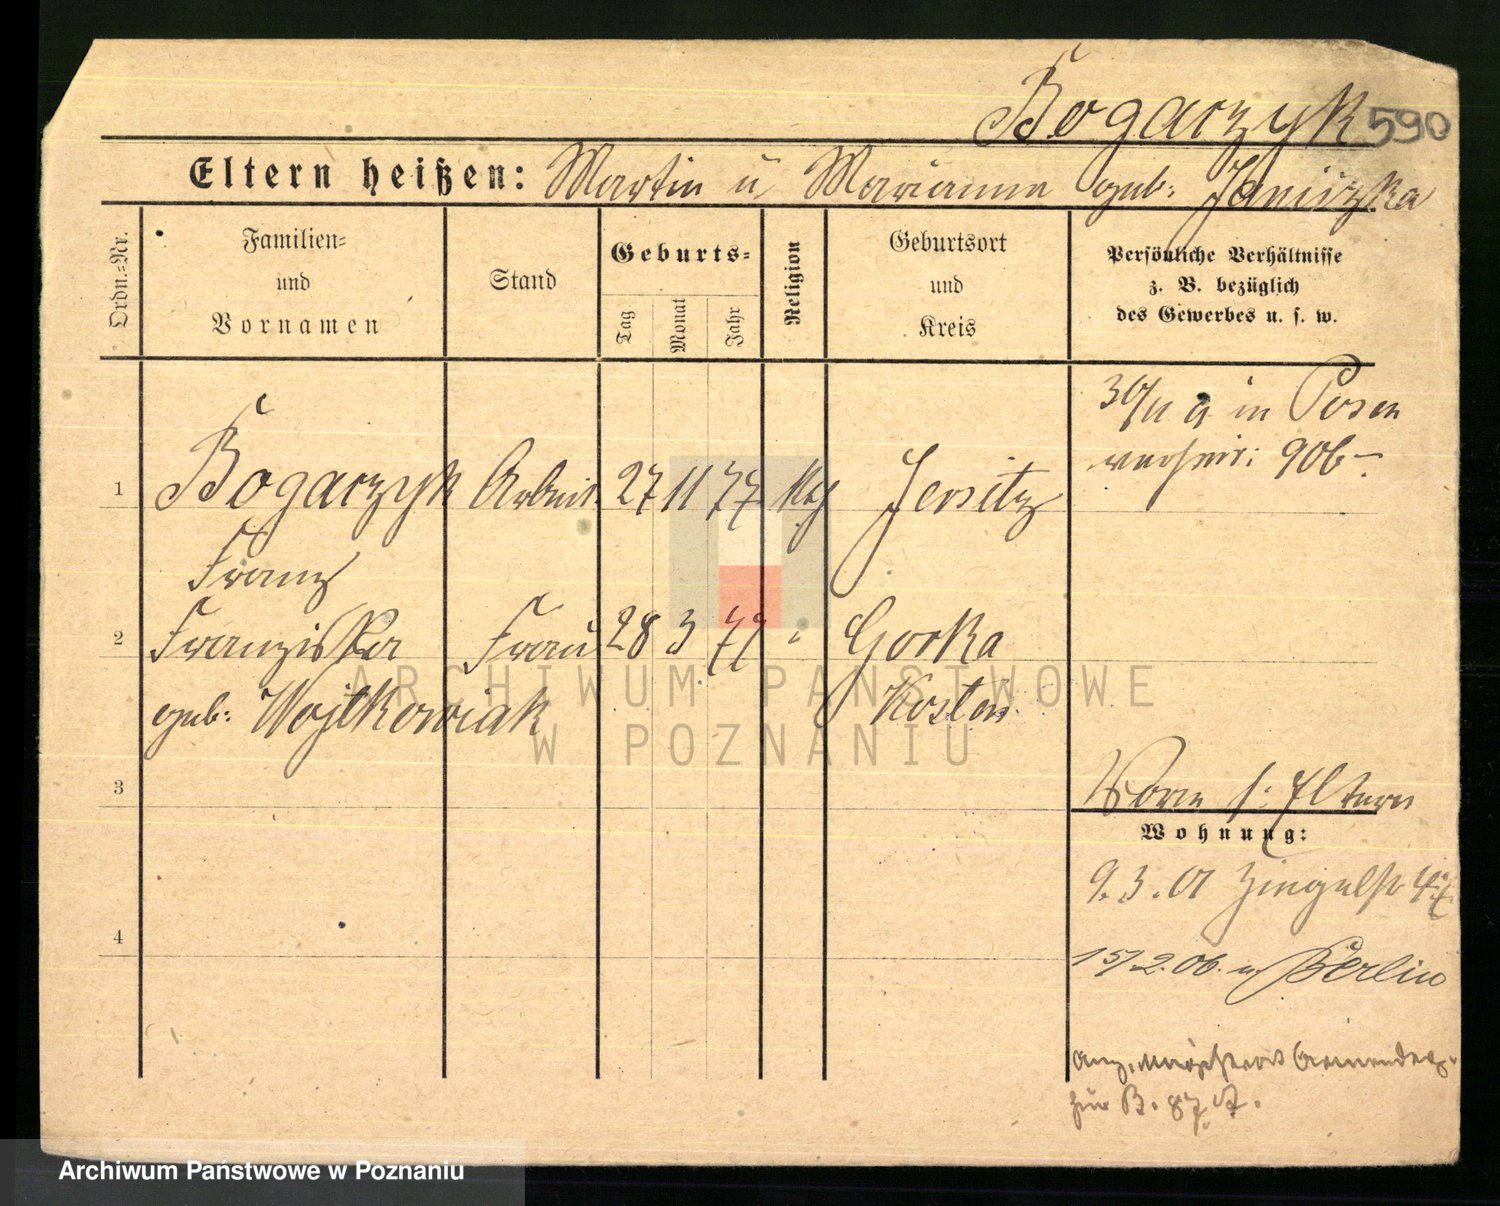 Bogaczyk 590
Eltern heißen: Martin u Marianna geb: Januszka
Ordn.=Nr.
Familien=
und
Vornamen
Stand
Geburts=
Tag
Monat
Jahr
Religion
Geburtsort
und
Kreis
Persönliche Verhältnisse
z. B. bezüglich
des Gewerbes u. s. w.
30/11 in Posen
verheir: 906
1 Bogaczyk Arbeit. 27 11 77 Kth Jersitz
Franz
2 Franziska Frau 28 3 77 " Gorka
geb: Wojtkowiak Kosten
3
s: Eltern
Wohnung:
9.3.01
4
15/2.06. n Berlin
zur B. 87
ARCHIWUM PAŃSTWOWE
W POZNANIU
Archiwum Państwowe w Poznaniu